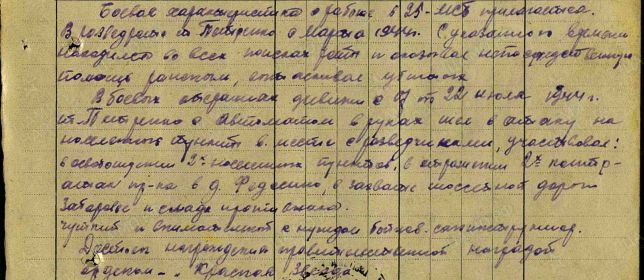 Боевая характеристика о работе в 25-МСБ прилагается.
В разведроте ст. Петренко с марта 1944г. С указанного времени
находился во всех поисках роты и оказывал непосредственную
помощь раненым
В боевых операциях дивизии с 17 по 22 июля 1944г.
ст. Петренко с автоматом в руках шел в атаку на
населенные пункты вместе с разведчиками, участвовал:
в освобождении 2х населенных пунктов, в отражении 2х контр-
атак пр-ка в д. Федосино, в захвате шоссейной дороги
и склада противника.
Чуткий и внимательный к нуждам бойцов - санинструктор.
Достоин награждения правительственной наградой
орденом - "Красная Звезда"